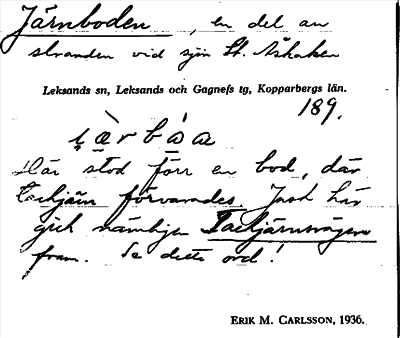 Järnboden, en del av
stranden vid sjön St. Åskaken
Leksands sn, Leksands och Gagnefs tg, Kopparbergs län.
189.
i̯æ̀rbɷ́a
Där stod förr en bod, där
tackjärn förvarades. Just här
gick nämligen Tackjärnsvägen
fram. Se detta ord!
ERIK M. CARLSSON, 1936.